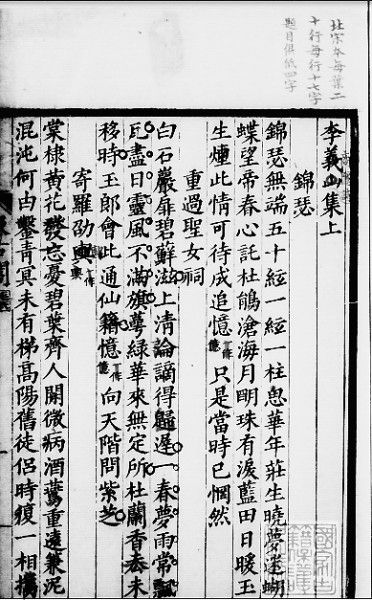 北宋本每葉二
十行每行十七字
題目俱低四字
李義山集上
錦瑟
錦瑟無端五十絃一絃一柱思華年莊生曉夢迷蝴
蝶望帝春心託杜鵑滄海月明珠有淚藍田日暖玉
生煙此情可待成追憶 只是當時已惘然
重過聖女祠
白石巖扉碧蘚滋上清論謫得歸遲一春夢雨常飄
瓦盡日靈風不滿旗萼綠華來無定所杜蘭香去未
移時玉郎會此通仙籍憶 向天階問紫芝
寄羅劭輿
棠棣黃花發忘憂碧葉齊人閒微病酒鷰重遠兼泥
混沌何由鑿青冥未有梯高陽舊徒侶時復一相攜